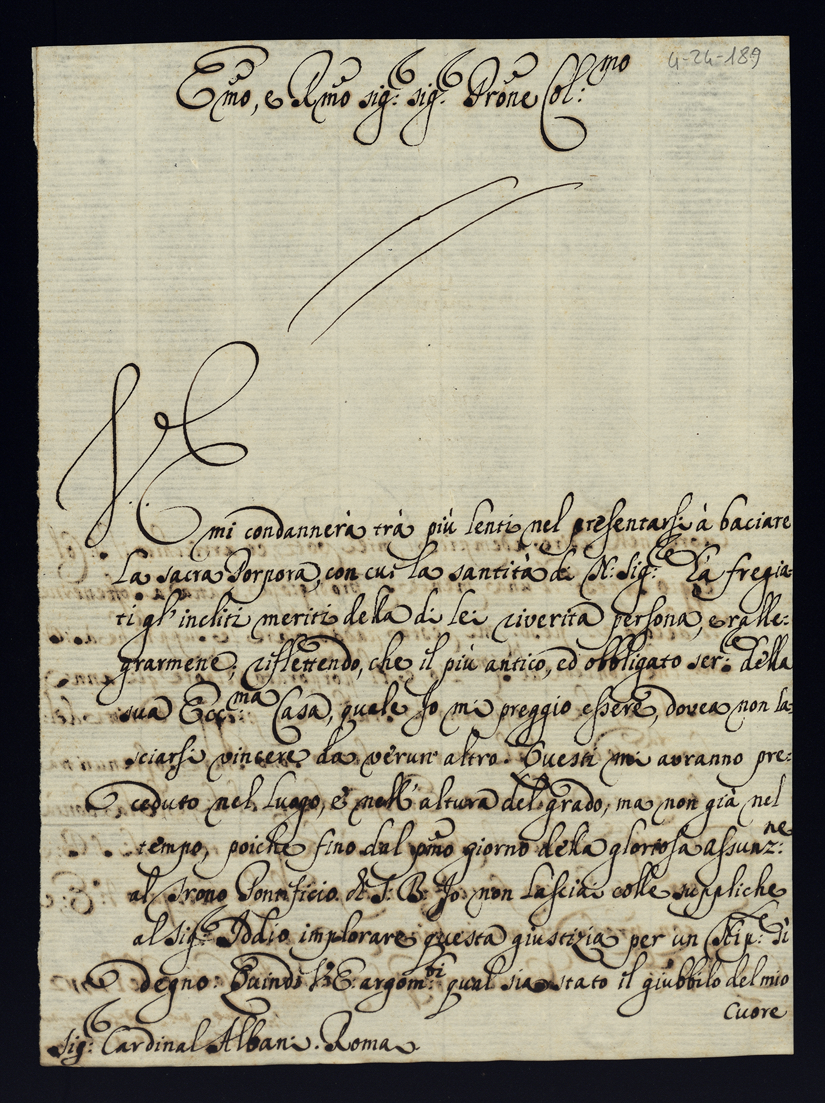 4-24-189
Emo, e Rmo Sig:r Sig:r Prone Col:mo
V E
mi condannerà trà più lenti nel presentarsi à baciare
la sacra Porpora, con cui la santità di N: Sig:re hà fregia-
ti gl'incliti meriti della di lei riverita persona, e ralle:
grarmene; riflettendo, che il più antico, ed obbligato ser:e della
sua Ecc:ma Casa, quale Io mi preggio essere, dovea non la
sciarsi vincere da verun' altro. Questi mi avranno pre:
ceduto nel luogo, e nell'altura del grado, ma non già nel
tempo, poiche fino dal pmo giorno della gloriosa assunz:ne
al Trono Pontificio di S. B. Io non lasciai colle suppliche
al Sig:r Iddio implorare questa giustizia per un Nip:e sì
degno: Quindi V. E. argom:ti qual sia stato il giubbilo del mio
cuore
Sig:r Cardinal Albani. Roma